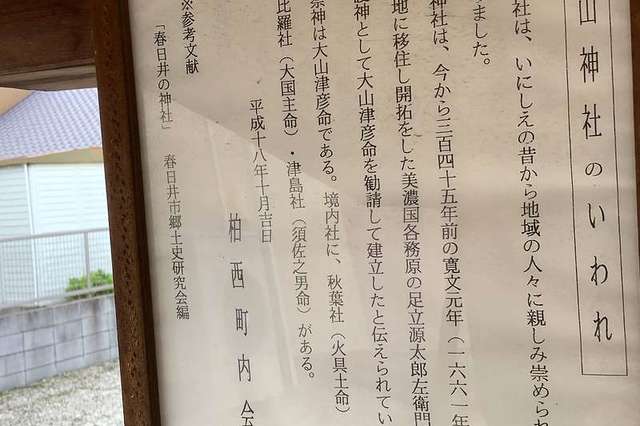 山神社のいわれ
社は、いにしえの昔から地域の人々に親しみ崇められ
ました。
神社は、今から三百四十五年前の寛文元年（一六六一年
地に移住し開拓をした美濃国各務原の足立源太郎左衛門
神として大山津彦命を勧請して建立したと伝えられてい
祭神は大山津彦命である。境内社に、秋葉社（火具土命）
比羅社（大国主命）・津島社（須佐之男命）がある。
平成十八年十月吉日
柏西町内会
※参考文献
「春日井の神社」　春日井市郷土史研究会編